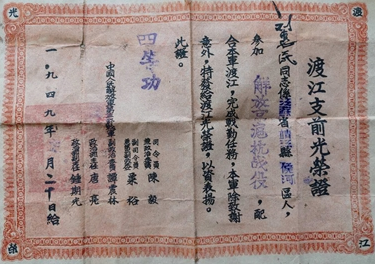 渡江支前光榮證
同志係縣區人，
參加解放京滬杭战役，配
合本軍渡江，完成戰勤任務，本軍除致謝
意外，特發給渡江光榮證，以資表揚。
此證。
四等功
中國人民解放軍第三野戰軍
司令員兼政治委員 陳毅
副司令員 粟裕
副政治委員 譚震林
政治部主任 唐亮
政治部副主任 鍾期光
一九四九年月二十日給
渡
江
光
榮